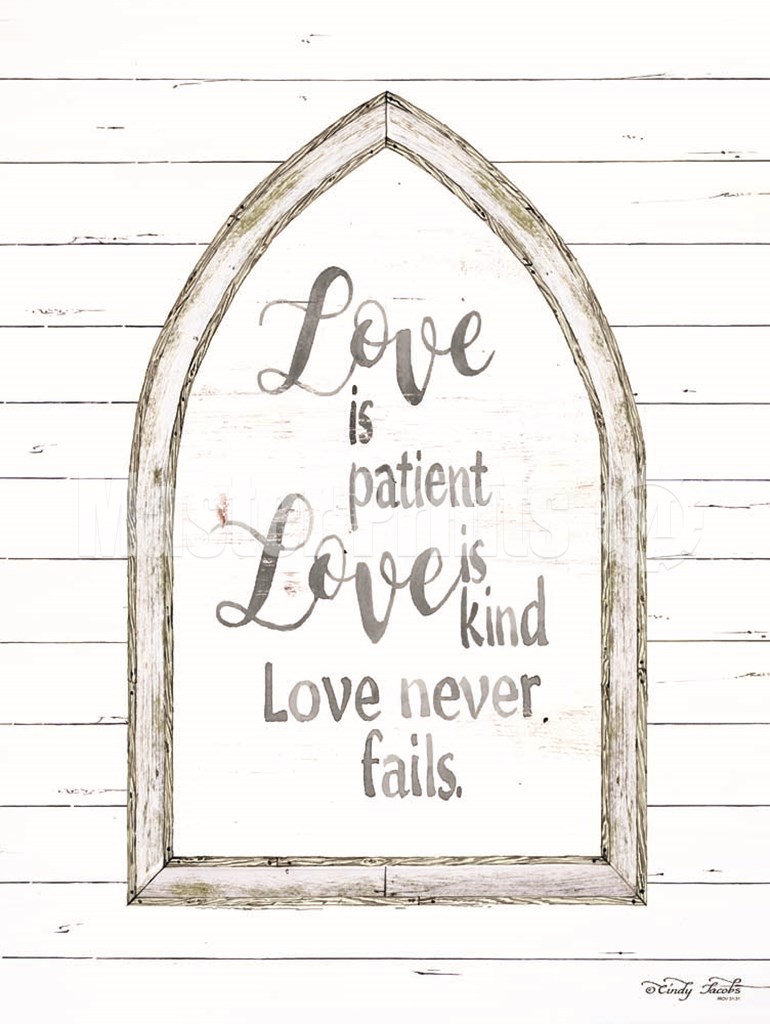 Love
is
patient
Love is
kind
Love never
fails.
MasterPrints
© Cindy Jacobs
PROV 31:31